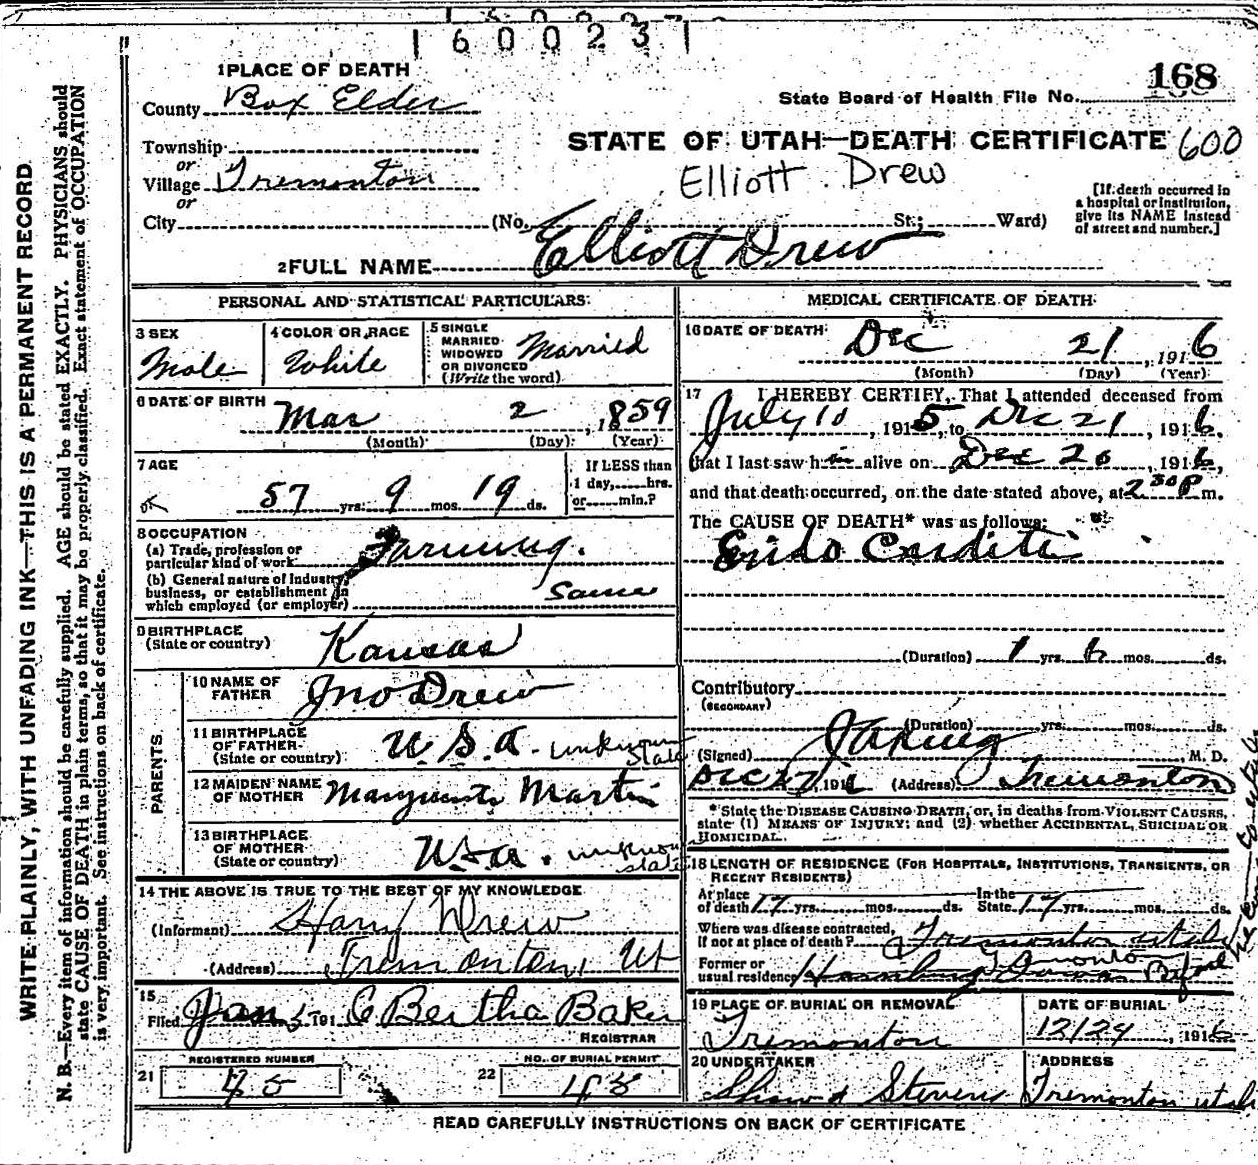 1600231
1 PLACE OF DEATH
County Box Elder
168
State Board of Health File No.
STATE OF UTAH—DEATH CERTIFICATE 600
Township
or
Village Tremonton
or
City (No. St.; Ward)
Elliott Drew
[If death occurred in a hospital or institution, give its NAME instead of street and number.]
2 FULL NAME Elliott Drew
PERSONAL AND STATISTICAL PARTICULARS
3 SEX
Male
4 COLOR OR RACE
White
5 SINGLE
MARRIED
WIDOWED
OR DIVORCED
(Write the word)
Married
6 DATE OF BIRTH
Mar 2, 1859
(Month) (Day) (Year)
7 AGE
57 yrs. 9 mos. 19 ds.
If LESS than
1 day, hrs.
or min.?
8 OCCUPATION
(a) Trade, profession or
particular kind of work Farming.
(b) General nature of Industry,
business, or establishment in
which employed (or employer) Same
9 BIRTHPLACE
(State or country) Kansas
PARENTS
10 NAME OF
FATHER Jno Drew
11 BIRTHPLACE
OF FATHER
(State or country) U.S.A. unknown state
12 MAIDEN NAME
OF MOTHER Marguerite Martin
13 BIRTHPLACE
OF MOTHER
(State or country) U.S.A. unknown state
14 THE ABOVE IS TRUE TO THE BEST OF MY KNOWLEDGE
(Informant) Harry Drew
(Address) Tremonton, Ut
15
Filed Jan 5 191 C Bertha Baker
REGISTRAR
21 REGISTERED NUMBER
45
22 NO. OF BURIAL PERMIT
MEDICAL CERTIFICATE OF DEATH
16 DATE OF DEATH
Dec 21, 1916
(Month) (Day) (Year)
17 I HEREBY CERTIFY, That I attended deceased from
July 10, 1915, to Dec 21, 1916,
that I last saw him alive on Dec 20, 1916,
and that death occurred, on the date stated above, at 2 30 P m.
The CAUSE OF DEATH* was as follows:
Endo Carditi
(Duration) 1 yrs. 6 mos. ds.
Contributory
(SECONDARY)
(Duration) yrs. mos. ds.
(Signed) M. D.
Dec, 191 (Address) Tremonton
* State the DISEASE CAUSING DEATH, or, in deaths from VIOLENT CAUSES,
state (1) MEANS OF INJURY; and (2) whether ACCIDENTAL, SUICIDAL OR
HOMICIDAL.
18 LENGTH OF RESIDENCE (FOR HOSPITALS, INSTITUTIONS, TRANSIENTS, OR
RECENT RESIDENTS)
At place
of death 17 yrs. mos. ds.
In the
State 17 yrs. ds.
Where was disease contracted,
if not at place of death? Tremonton Utah
Former or
usual residence
19 PLACE OF BURIAL OR REMOVAL
Tremonton
DATE OF BURIAL
12/24, 1916
20 UNDERTAKER
Shaw & Stevens
ADDRESS
Tremonton Utah
READ CAREFULLY INSTRUCTIONS ON BACK OF CERTIFICATE
WRITE PLAINLY, WITH UNFADING INK—THIS IS A PERMANENT RECORD
N. B.—Every item of information should be carefully supplied. AGE should be stated EXACTLY. PHYSICIANS should
state CAUSE OF DEATH in plain terms, so that it may be properly classified. Exact statement of OCCUPATION
is very important. See instructions on back of certificate.